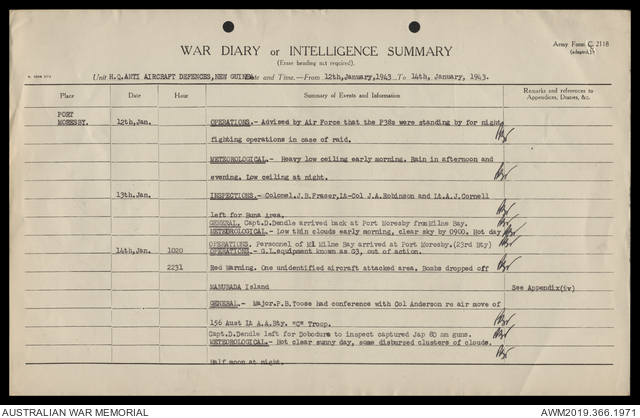 Army Form C. 2118
(adapted)
WAR DIARY or INTELLIGENCE SUMMARY
(Erase heading not required).
Unit H.Q.ANTI AIRCRAFT DEFENCES,NEW GUINEA Date and Time.—From 12th,January,1943 To 14th, January, 1943.
Place Date Hour Summary of Events and Information Remarks and references to Appendices, Diaries, &c.
PORT
MORESBY. 12th,Jan. OPERATIONS.- Advised by Air Force that the P38s were standing by for night
fighting operations in case of raid.
METEOROLOGICAL.- Heavy low ceiling early morning. Rain in afternoon and
evening. Low ceiling at night.
13th,Jan. INSPECTIONS.- Colonel.J.B.Fraser,Lt-Col J.A.Robinson and Lt.A.J.Cornell
left for Buna Area.
GENERAL. Capt.D.Dendle arrived back at Port Moresby from Milne Bay.
METEOROLOGICAL.- Low thin clouds early morning, clear sky by 0900. Hot day
OPERATIONS. Personnel of M1 Milne Bay arrived at Port Moresby.(23rd Bty)
14th,Jan. 1020 OPERATIONS.- G.L.equipment known as G3, out of action.
2231 Red Warning. One unidentified aircraft attacked area. Bombs dropped off
MANUBADA Island See Appendix(iv)
GENERAL.- Major.P.B.Toose had conference with Col Anderson re air move of
156 Aust Lt A.A.Bty. "C" Troop.
Capt.D.Dendle left for Dobodura to inspect captured Jap 80 mm guns.
METEOROLOGICAL.- Hot clear sunny day, some disbursed clusters of clouds.
Half moon at night.
AUSTRALIAN WAR MEMORIAL AWM2019.366.1971